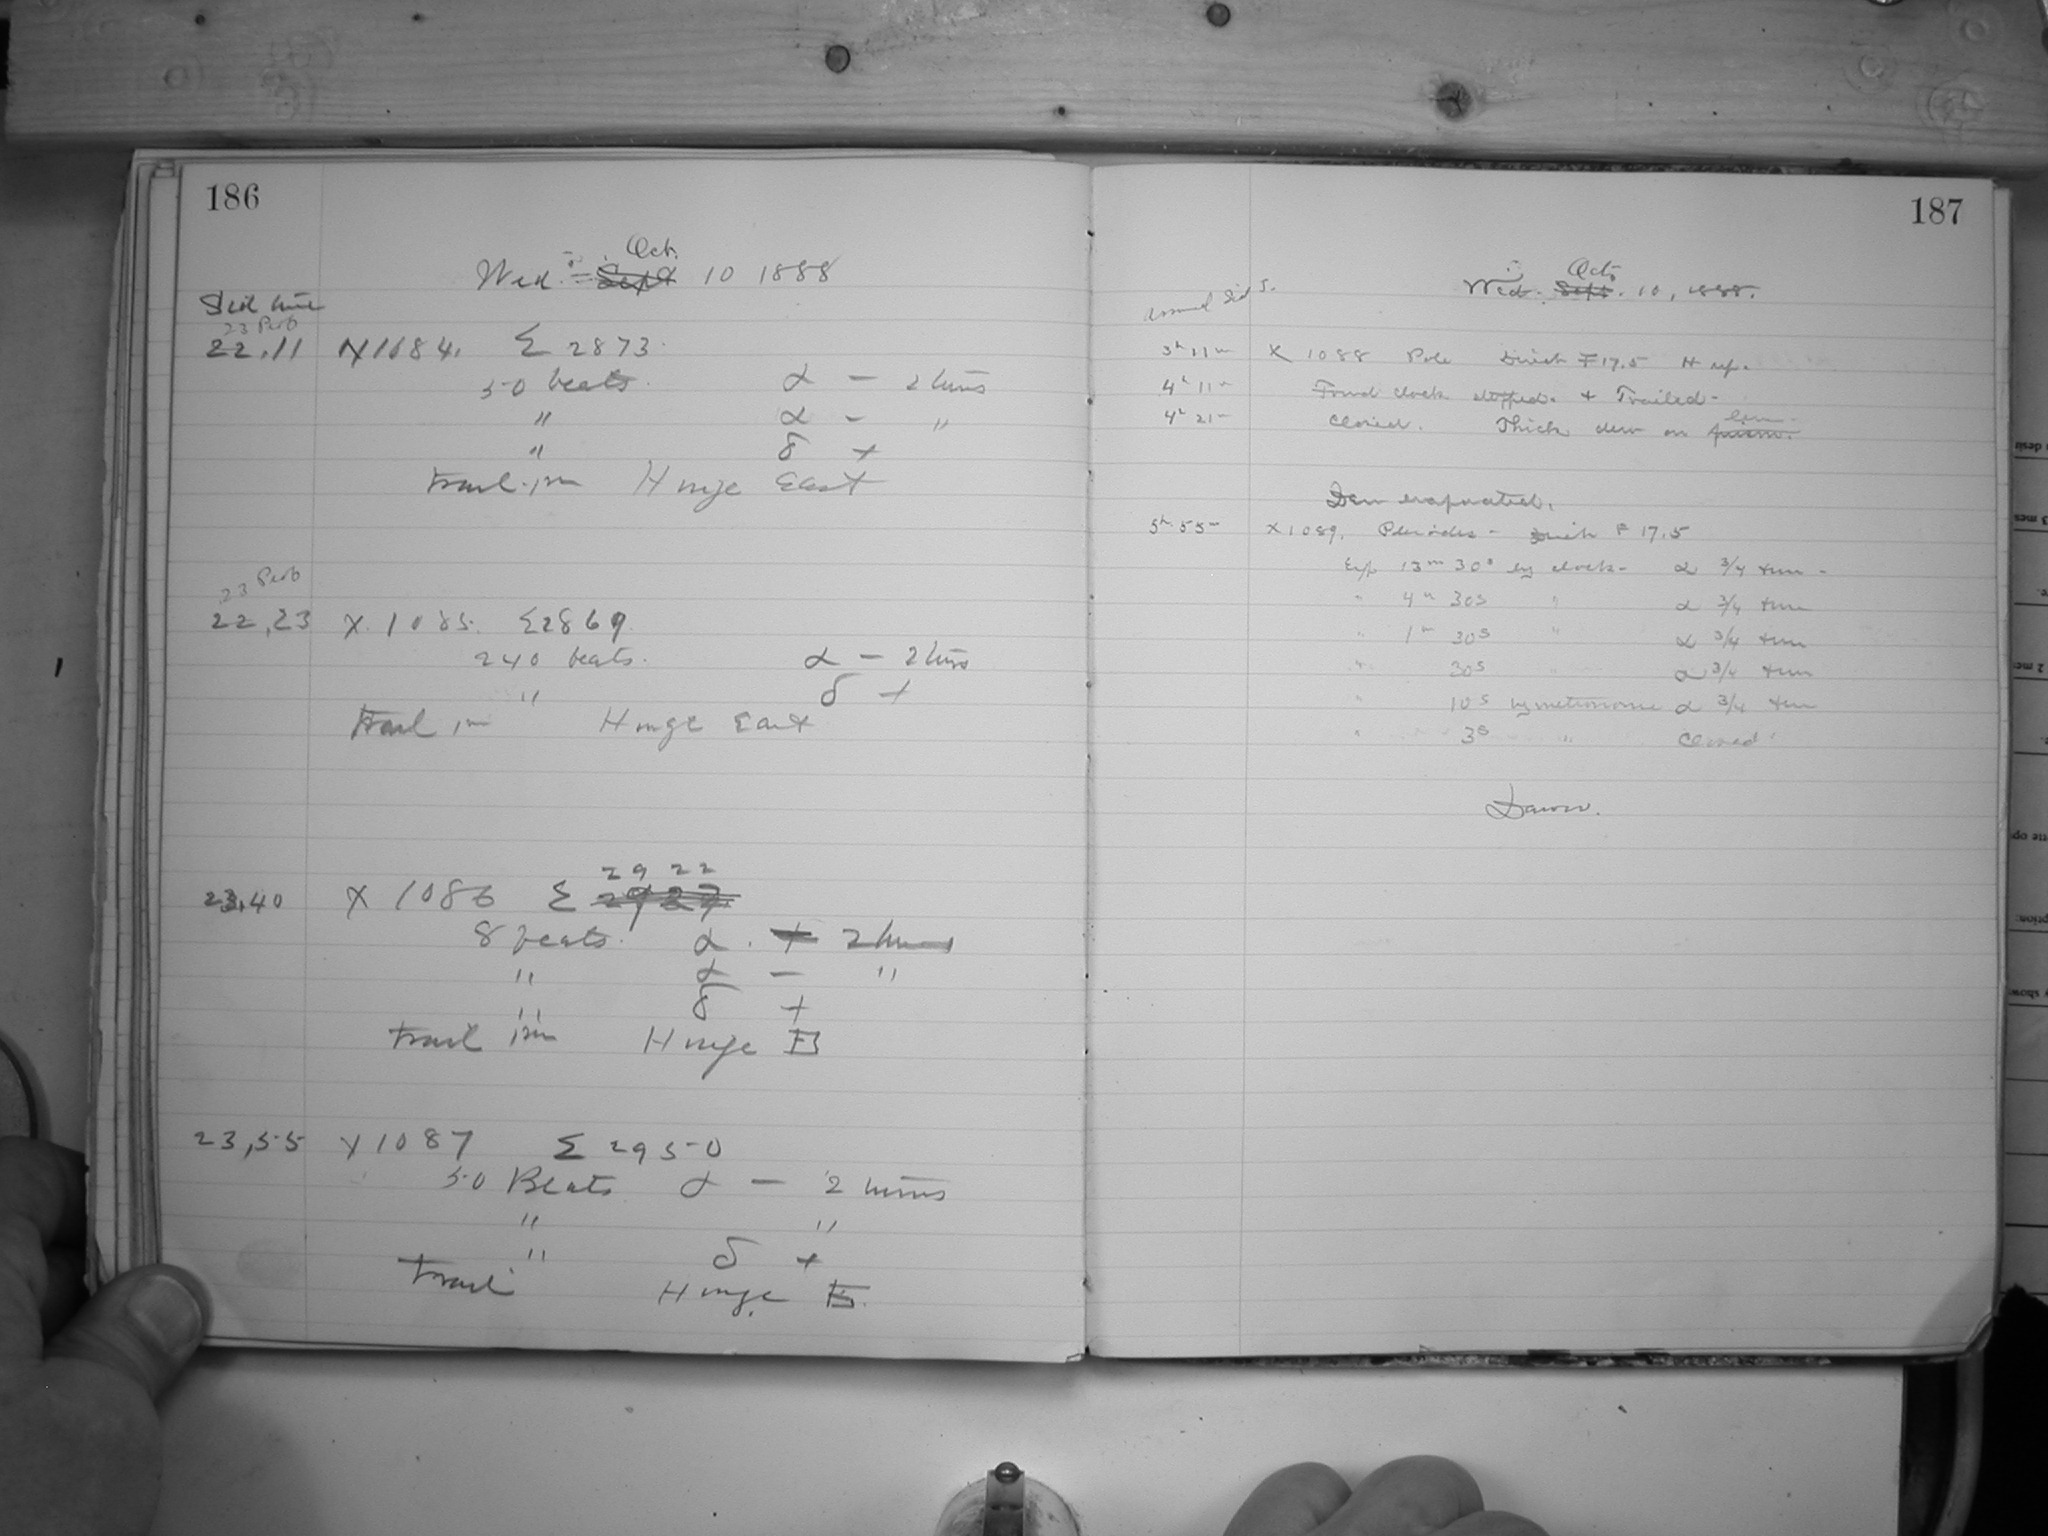 186
Oct.
Wed. Sept 10 1888
Sid time
23 Prob
22,11 X1084. Σ 2873.
50 beats. α — 2 turns
" α — "
" δ +
Trail 1m Hinge East
23 Prob
22,23 X.1085. Σ2869
240 beats. α — 2 turns
" δ +
Trail 1m Hinge East
29 22
23,40 X 1086 Σ 2927
8 beats. α. + 2 turns
" α — "
" δ +
Trail 1m Hinge E
23,55 X1087 Σ 2950
50 Beats α — 2 turns
" "
" δ +
Trail Hinge E.
187
Oct.
Wed. Sept. 10, 1888.
Sid T.
3h 11m X 1088 Pole Finish F 17.5 H up.
4h 11m Found clock stopped. & Trailed-
lens
4h 21m Closed. Thick dew on prism.
Dew evaporated.
5h 55m X1089. Pleiades - F 17.5
Exp 13m 30s by clock- α 3/4 turn -
" 4m 30s " α 3/4 turn
" 1m 30s " α 3/4 turn
" 30s " α 3/4 turn
" 10s by metronome α 3/4 turn
" 3s " Closed.
Dawn.